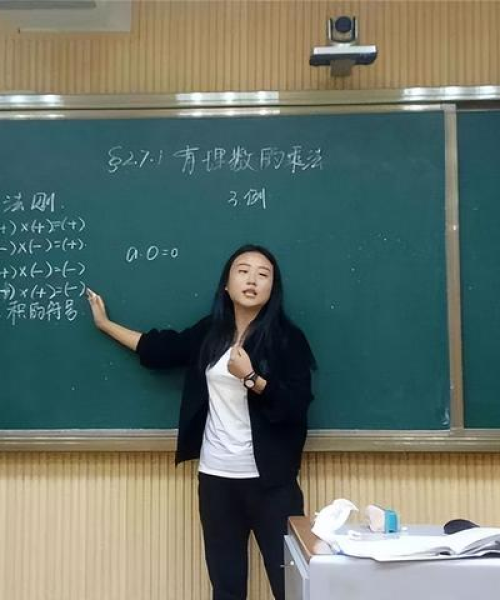 §2.7.1 有理数的乘法
法则.
+)×(+)=(+)
-)×(-)=(+).
+)×(-)=(-)
)×(+)=(-)
积的符号
3.例
a·0=0